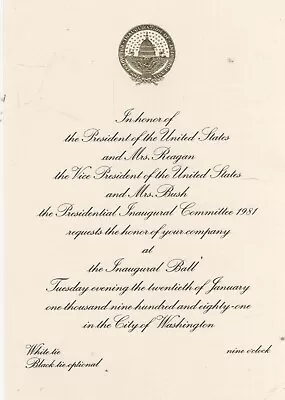 In honor of
the President of the United States
and Mrs. Reagan
the Vice President of the United States
and Mrs. Bush
the Presidential Inaugural Committee 1981
requests the honor of your company
at
the Inaugural Ball
Tuesday evening the twentieth of January
one thousand nine hundred and eighty-one
in the City of Washington
White tie
nine o'clock
Black tie optional